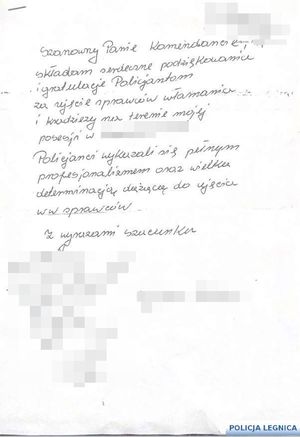 Szanowny Panie Komendancie!
składam serdeczne podziękowania
i gratulacje Policjantom
za ujęcie sprawców włamania
i kradzieży na terenie mojej
posesji w
Policjanci wykazali się pełnym
profesjonalizmem oraz wielką
determinacją dążącą do ujęcia
w/w sprawców.
Z wyrazami szacunku
POLICJA LEGNICA